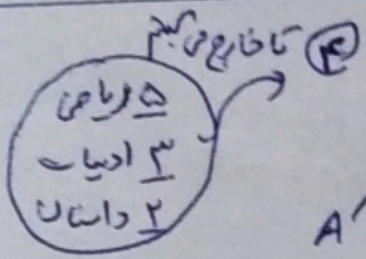 ۴ تا خارج می کنیم
۵ ریاضی
۳ ادبیات
۲ داستان
A'